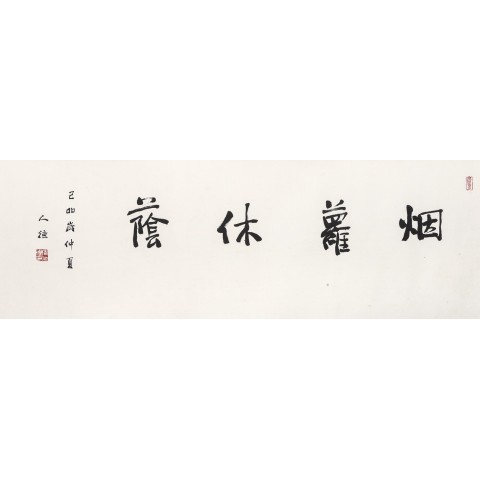 烟蘿休蔭
己卯歲仲夏
人德